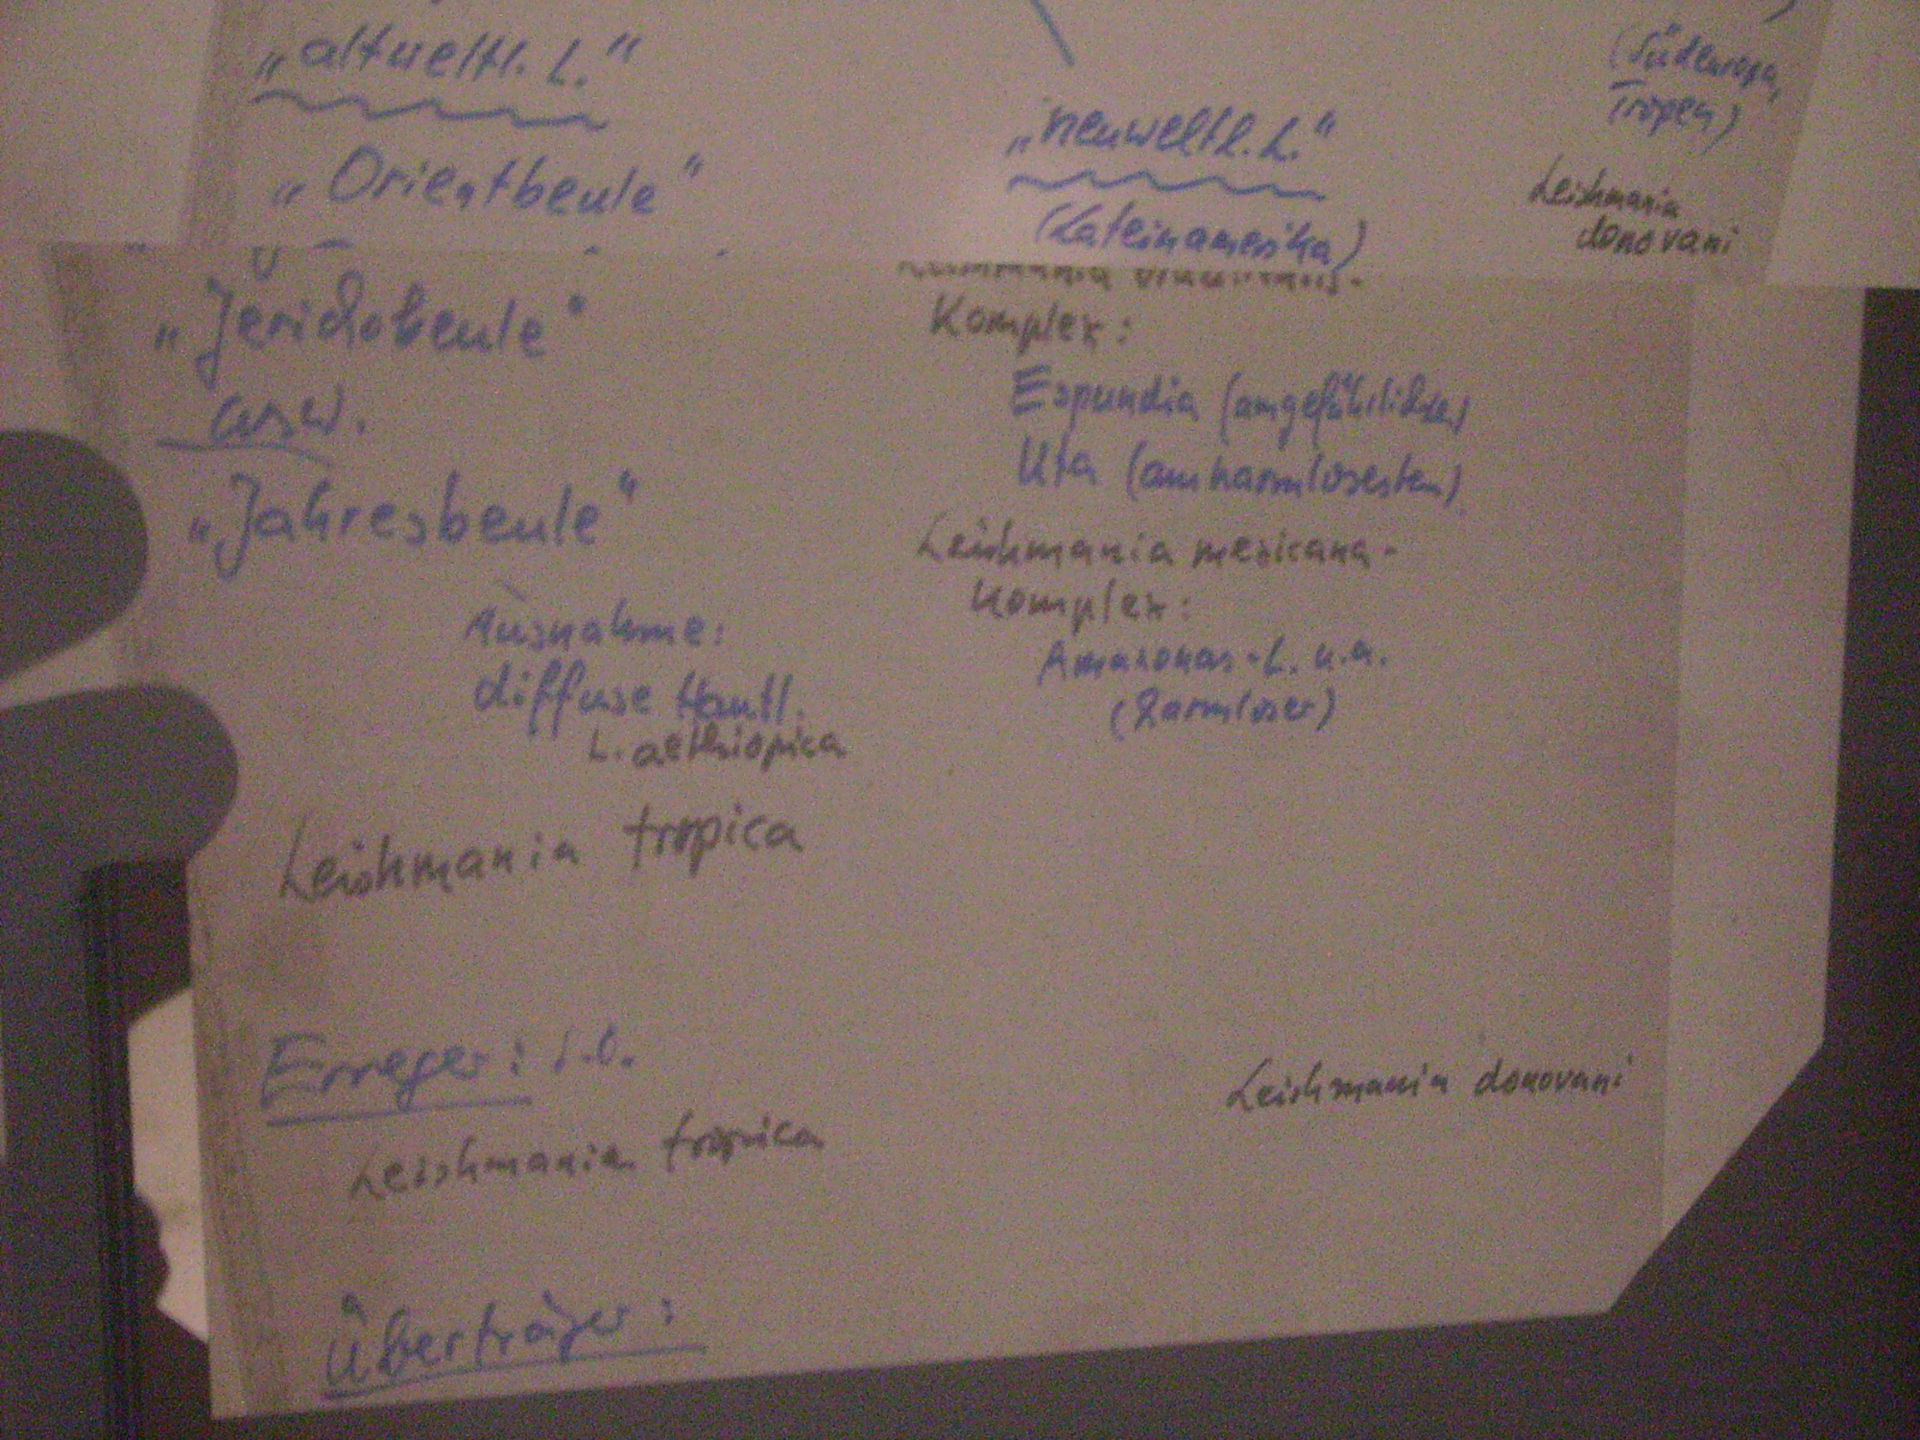 „altweltl. L."
„Orientbeule"
„neuweltl. L."
(Lateinamerika)
(Südeuropa,
Tropen)
Leishmania
donovani
„Jerichobeule"
usw.
„Jahresbeule"
Ausnahme:
diffuse Hautl.
L. aethiopica
Leishmania tropica
Leishmania
Komplex:
Espundia (am gefährlichsten)
Uta (am harmlosesten)
Leishmania mexicana-
Komplex:
Amazonas-L. u.a.
(harmloser)
Erreger: s.o.
Leishmania tropica
Leishmania donovani
Überträger: